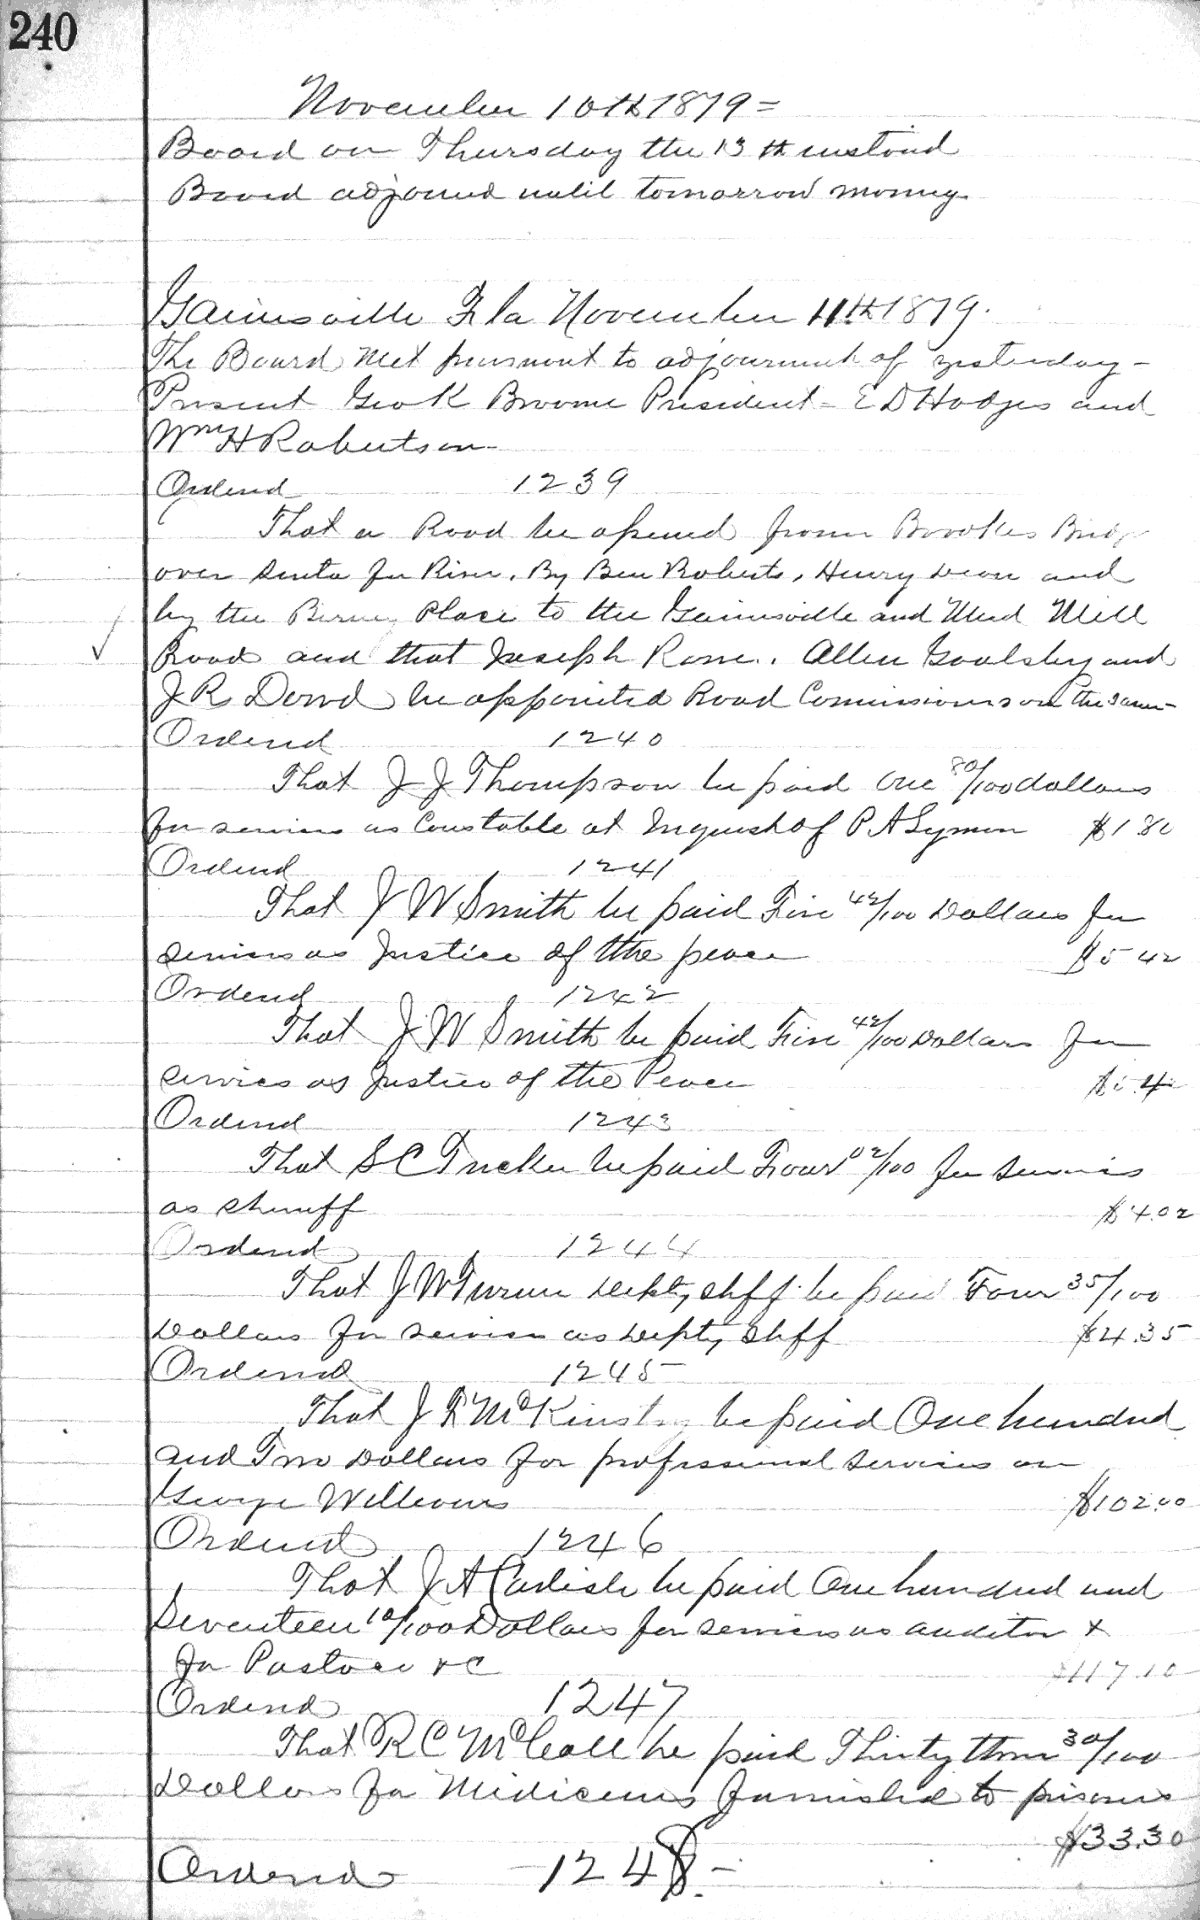 240
November 10th 1879=
Board on Thursday the 13th instand
Board adjourned until tomorrow morning
Gainesville Fla November 11th 1879.
The Board Met pursuant to adjournment of yesterday -
Present Geo K Broome President - E D Hodges and
Wm H Robertson
Ordered 1239
That a Road be opened from Brookes Bridge
over Santa Fee River. By Ben Roberts, Henry Dean and
by the Place to the Gainesville and Mill
Road and that Joseph Rone. Allen Goolsby and
J R Dowd be appointed Road Commissioners on the same-
Ordered 1240
That J J Thompson be paid One 80/100 dollars
for services as Constable at Inquest of P A Symon $1 80
Ordered 1241
That J W Smith be paid Five 42/100 Dollars for
services as Justice of the peace $5 42
Ordered 1242
That J W Smith be paid Five 42/100 Dollars for
services as Justice of the Peace $5.42
Ordered 1243
That S C Tucker be paid Four 02/100 for services
as Sheriff $4.02
Ordered 1244
That J W Turner Depty Shff be paid Four 35/100
Dollars for services as Depty Shff $4.35
Ordered 1245
That J F McKinstry be paid One hundred
and Two Dollars for professional services on
George Williams $102.00
Ordered 1246
That J A Carlisle be paid One hundred and
Seventeen 10/100 Dollars for services as auditor &
for Postage &C $117.10
Ordered 1247
That R C McCall be paid Thirty three 30/100
Dollars for Medicines furnished to prisoners
$33.30
Ordered -1248-